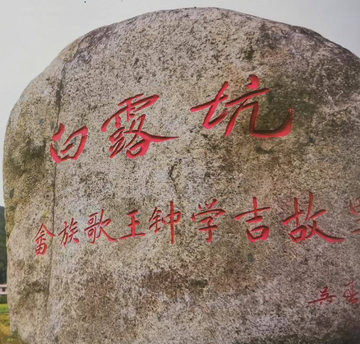 白露坑
畲族歌王钟学吉故